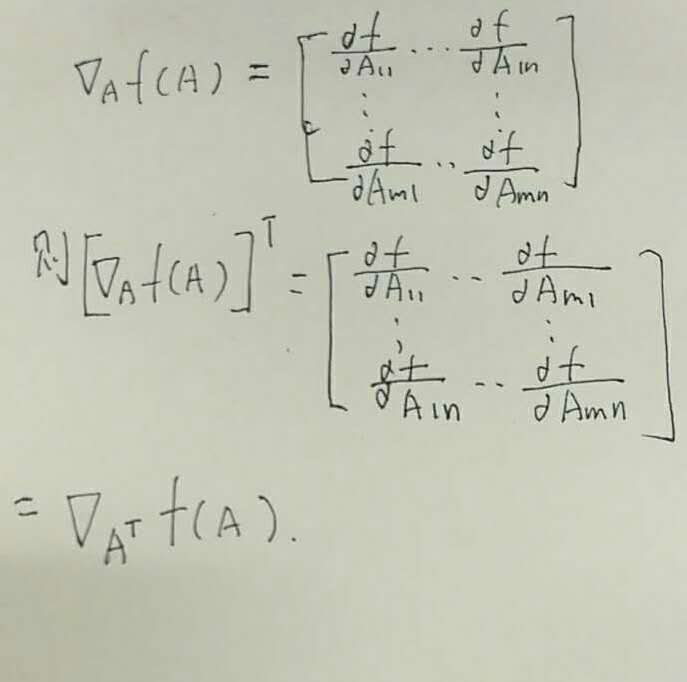 ∇_A f(A) = [ ∂f/∂A₁₁ ··· ∂f/∂A₁ₙ
⋮ ⋮
∂f/∂Aₘ₁ ·· ∂f/∂Aₘₙ ]
则 [∇_A f(A)]^T = [ ∂f/∂A₁₁ ·· ∂f/∂Aₘ₁
⋮ ⋮
∂f/∂A₁ₙ ·· ∂f/∂Aₘₙ ]
= ∇_{A^T} f(A).